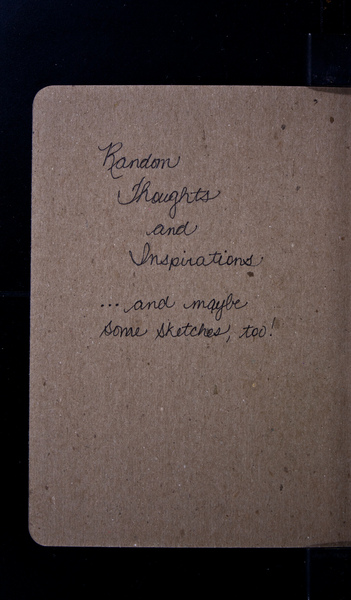 Random
Thoughts
and
Inspirations
... and maybe
some sketches, too!